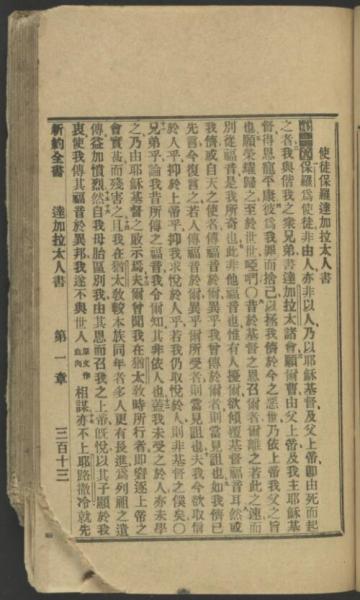 使徒保羅達加拉太人書
第一章 保羅爲使徒非由人亦非以人乃以耶穌基督及父上帝卽由死而起
之者我與偕我之衆兄弟書達加拉太諸會願爾曹由父上帝及我主耶穌基
督得恩寵平康彼爲我罪而捨己以拯我儕於今之惡世乃依上帝我父之旨
也願榮燿歸之至於世世啞們〇昔於基督之恩召爾者爾離之若此之速而
別從福音是我所奇也此非他福音也惟有人擾爾欲傾覆基督福音耳然或
我儕或自天之使者傳福音於爾異乎我曾傳於爾者則當見詛也如我儕已
先言今復言之若人傳福音於爾異乎爾所受者則當見詛也夫我今欲取信
於人乎抑於上帝乎抑我求悅於人乎若我仍取悅於人則非基督之僕矣〇
兄弟乎論我昔所傳之福音我令爾知其非依人也蓋我未受之於人亦未學
之乃由耶穌基督之啟示焉夫爾曾聞我在猶太敎時所行者卽窘逐上帝之
會實甚而殘害之且我在猶太敎較本族同年者多人更有長進爲列祖之遺
傳益加憤烈然自我母胎區別我由其恩而召我之上帝旣悅以其子顯於我
衷使我傳其福音於異邦我遂不與世人原文作血肉相謀亦不上耶路撒冷就先
新約全書 達加拉太人書 第一章 三百十三